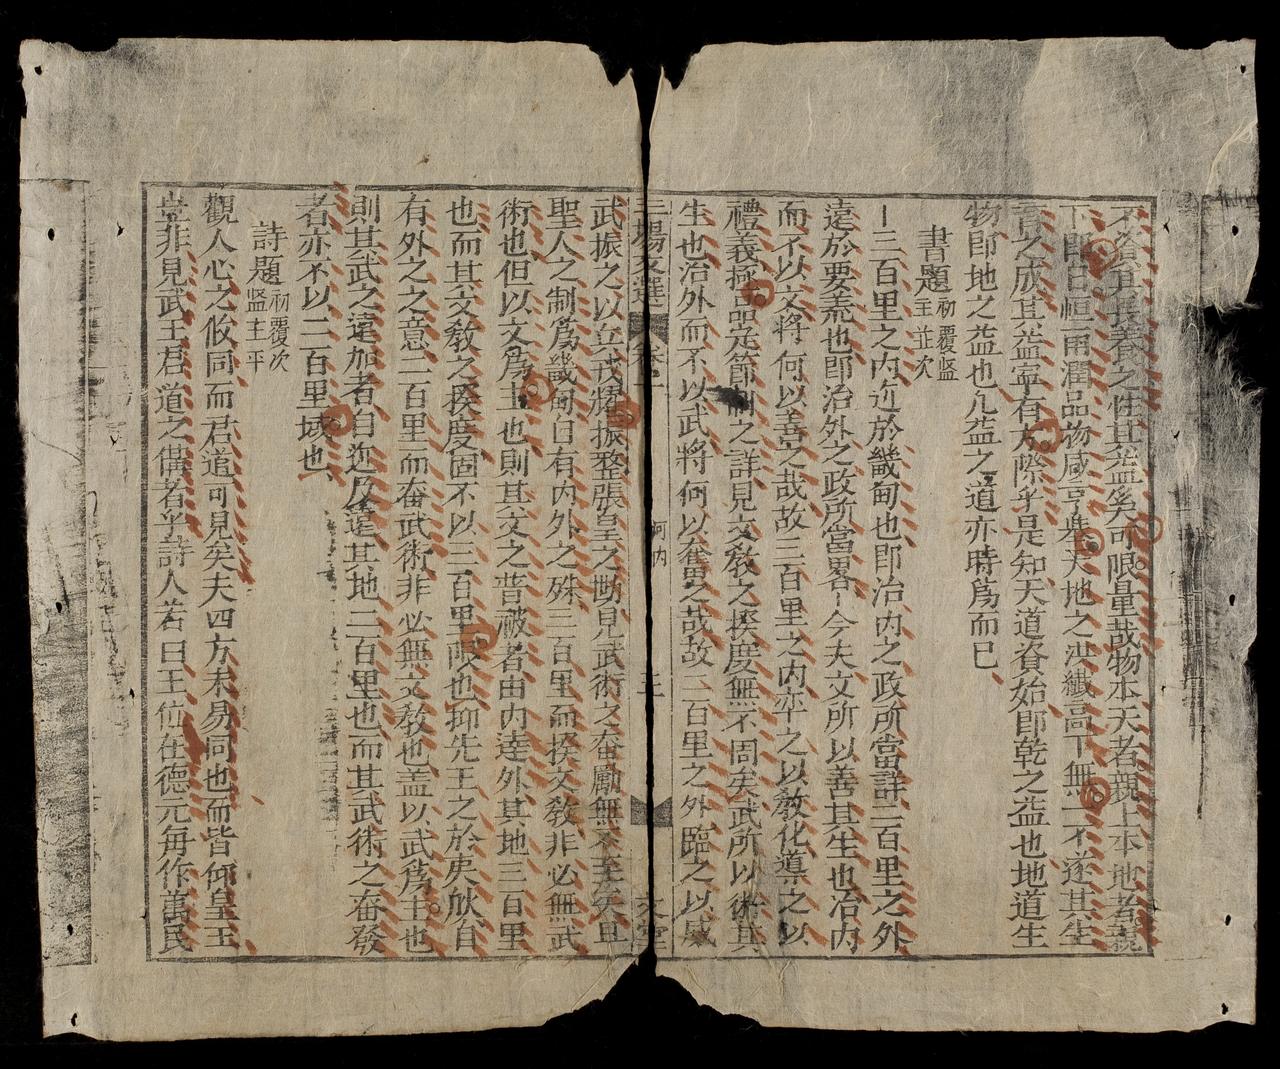 不容其長養之性其益多可限量哉物本天者親上本地者親
下即日恒雨潤品物咸亨舉天地之洪纖高下無一不遂其生
育之成其益寧有方際乎是知天道資始即乾之益也地道生
物即地之益也凡益之道亦時爲而已
書題初覆監主並次
三百里之內近於畿甸也即治內之政所當詳二百里之外
遠於要荒也即治外之政所當畧今夫文所以善其生也治內
而不以文將何以善之哉故三百里之內卒之以敎化導之以
禮義極品定節制之詳見文敎之揆度無不周矣武所以衛其
生也治外而不以武將何以奮畏之哉故二百里之外臨之以威
三場文選 卷二 河內 三 文堂
武振之以兵戎將振整張皇之勘見武衛之奮勵無不至矣且
聖人之制爲畿甸日有內外之殊三百里而揆文敎非必無武
衛也但以文爲主也則其文之普被者由內達外其地三百里
也而其文敎之揆度固不以三百里限也抑先王之於夷欣自
有外之之意二百里而奮武衛非必無文敎也盖以武爲主也
則其武之遠加者自迩及遠其地二百里也而其武衛之奮發
者亦不以二百里域也
詩題初覆次監主平
觀人心之攸同而君道可見矣夫四方未易同也而皆仰皇王
豈非見武王君道之備者乎詩人若曰王位在德元每作萬民